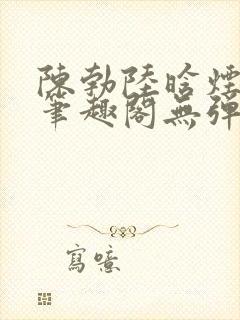 陳勃陸晗煙
筆趣閣無彈
寫噫